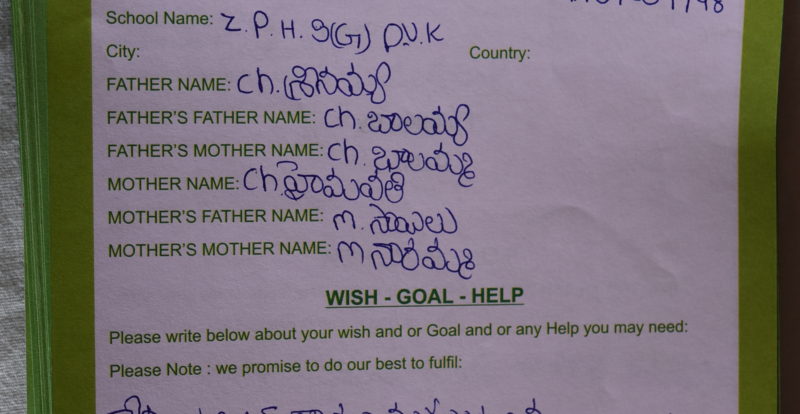 School Name: Z.P.H.S(G) D.V.K
City: Country:
FATHER NAME: ch. శ్రీనివాస్
FATHER'S FATHER NAME: ch. బాలయ్య
FATHER'S MOTHER NAME: ch. బాలమ్మ
MOTHER NAME: ch హైమవతి
MOTHER'S FATHER NAME: m. సాయిలు
MOTHER'S MOTHER NAME: m నారమ్మ
WISH - GOAL - HELP
Please write below about your wish and or Goal and or any Help you may need:
Please Note : we promise to do our best to fulfil: